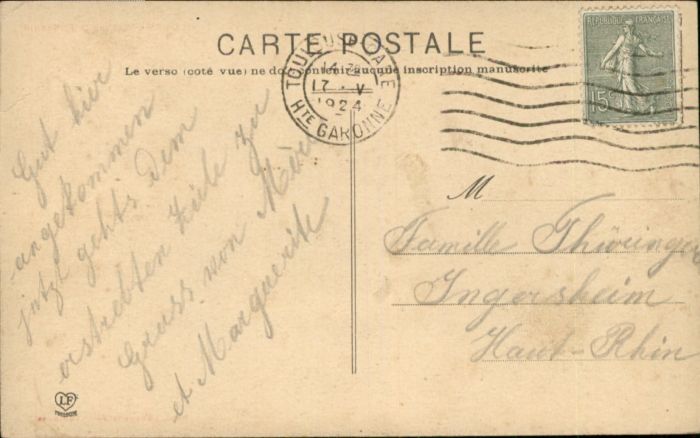 CARTE POSTALE
Le verso (coté vue) ne doit contenir aucune inscription manuscrite
RÉPUBLIQUE FRANÇAISE
15c
TOULOUSE GARE
14
17 · V
1924
HTE GARONNE
Gut hier
angekommen
jetzt gehts dem
erstrebten Ziele zu
Gruss von Mère
et Marguerite
M
Familie Thüringer
Ingersheim
Haut-Rhin
LF